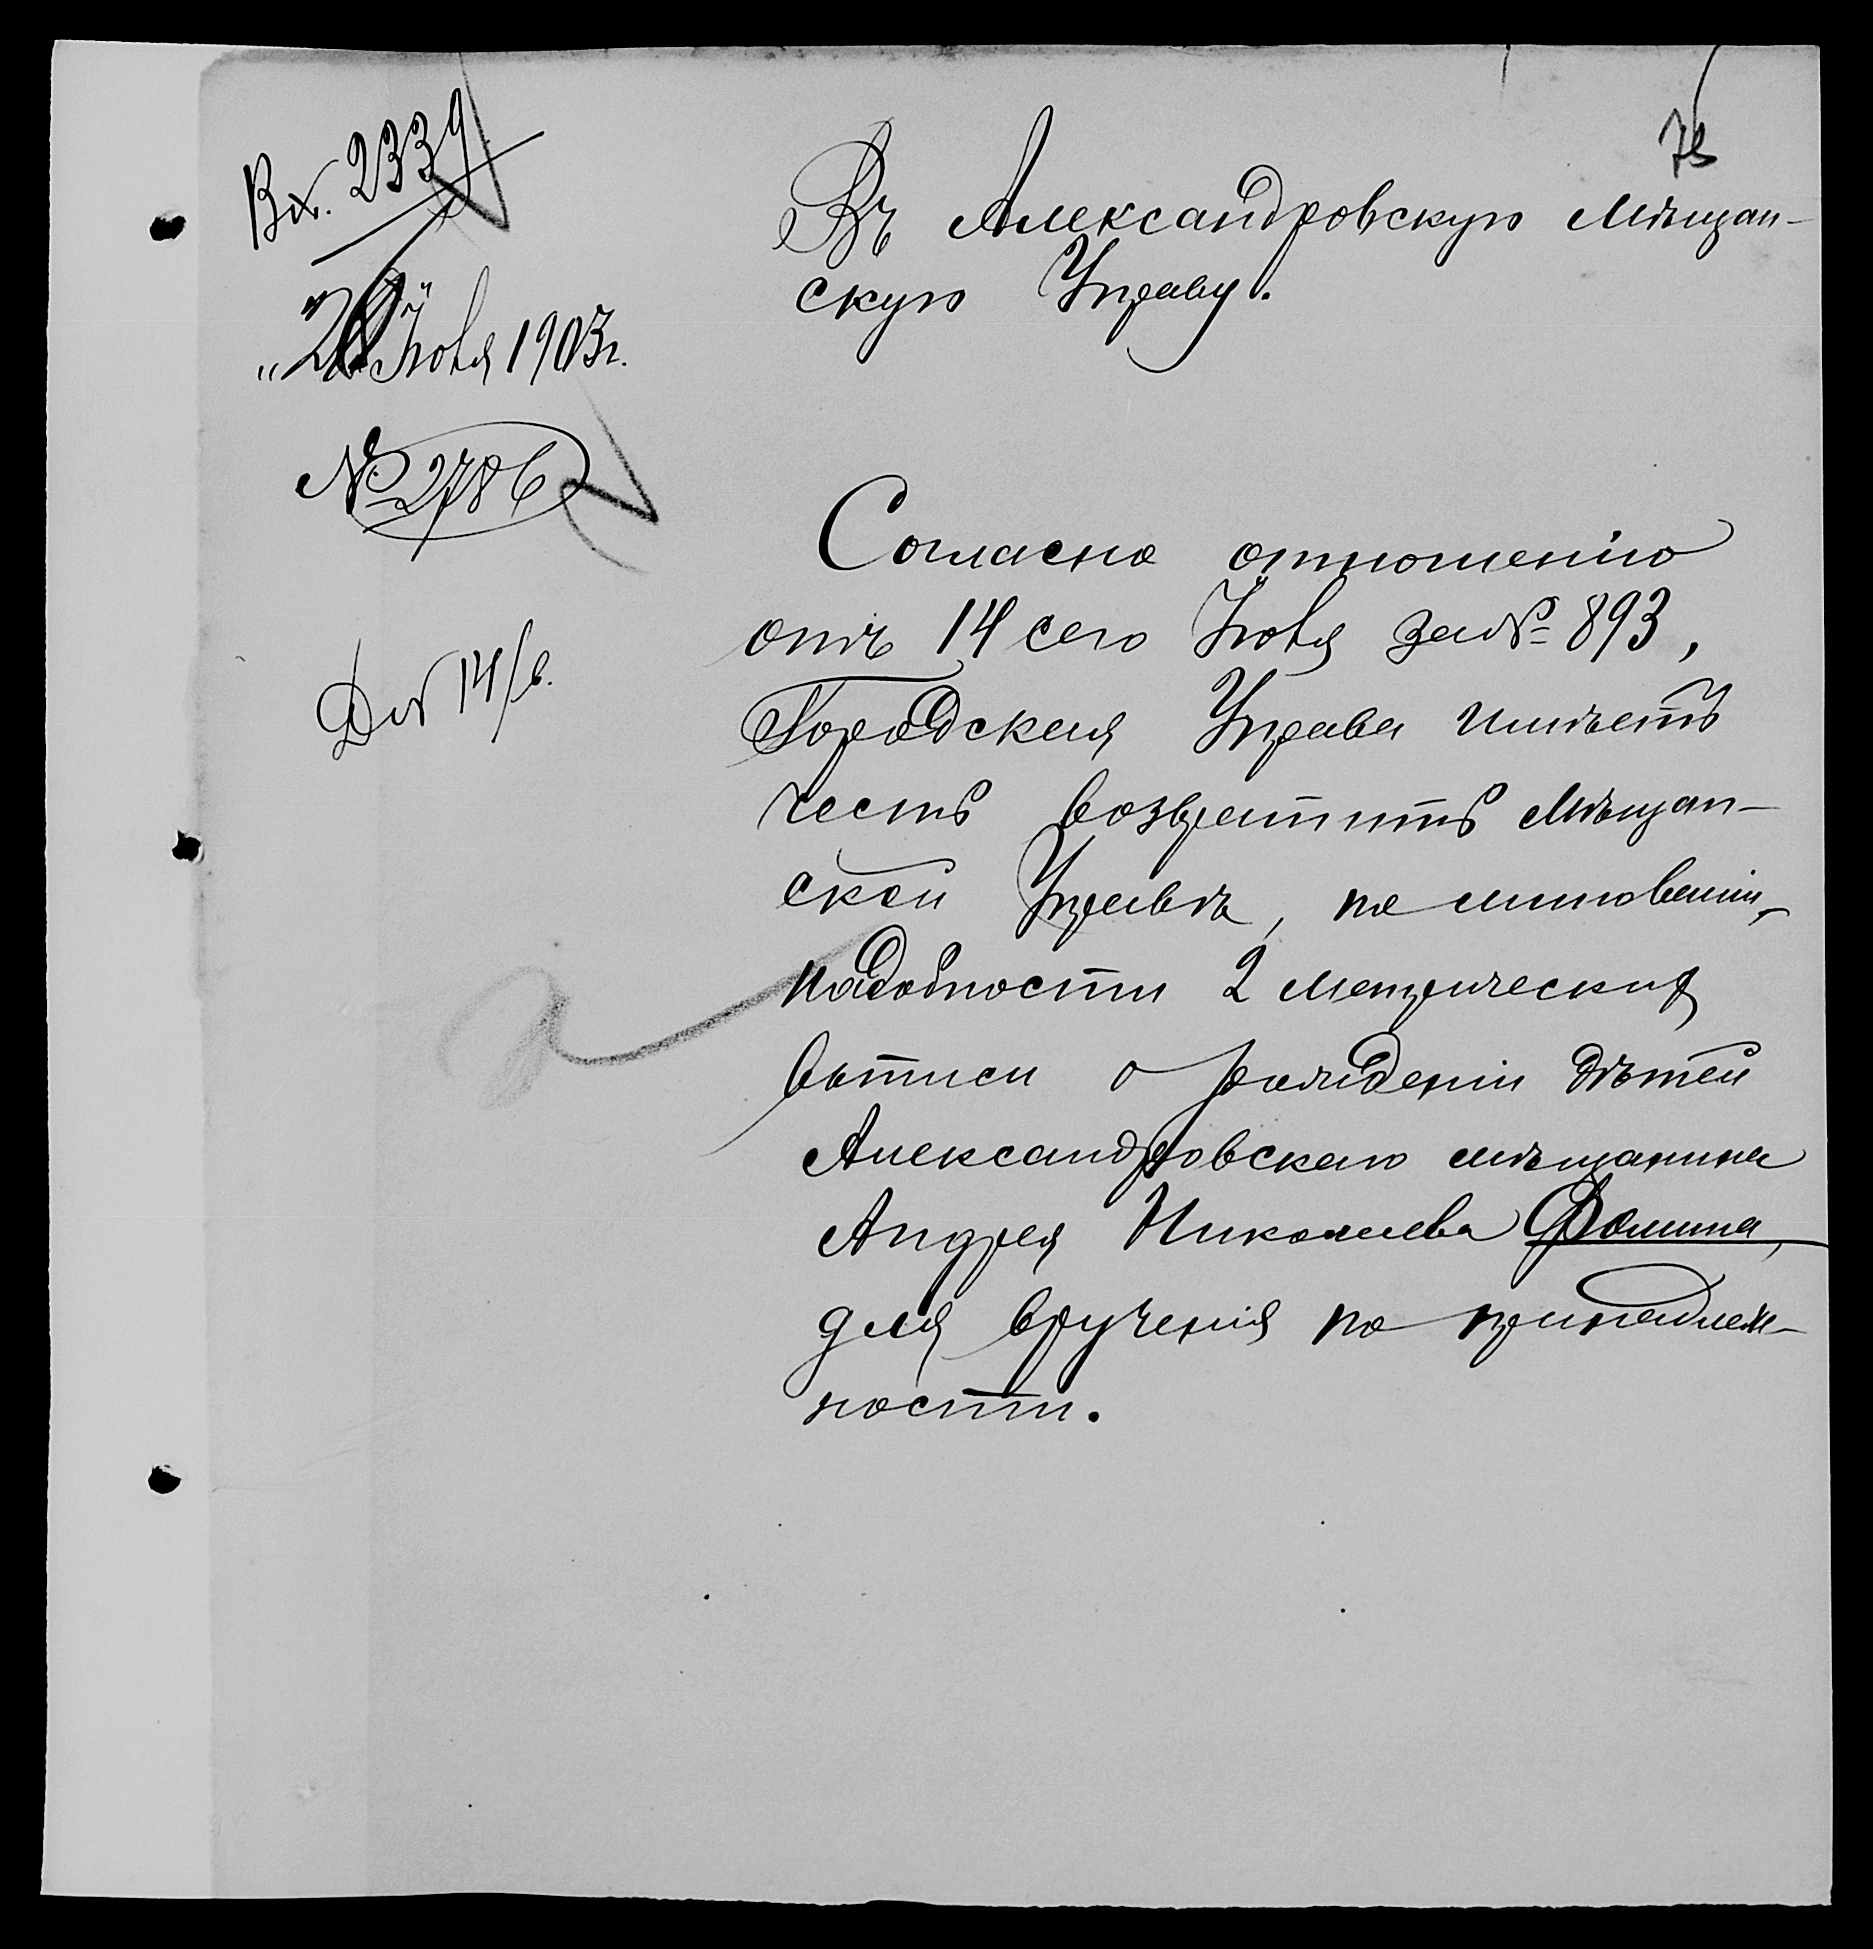 Вх. 2339
"26" Іюня 1903 г.
№ 2786
Въ Александровскую Мѣщан-
скую Управу.
Согласно отношенію
отъ 14 сего Іюня за № 893,
Городская Управа имѣетъ
честь возвратить Мѣщан-
ской Управѣ, по минованіи
надобности 2 метрическія
выписи о рожденіи дѣтей
Александровскаго мѣщанина
Андрея Николаева Фомина,
для врученія по принадлеж-
ности.